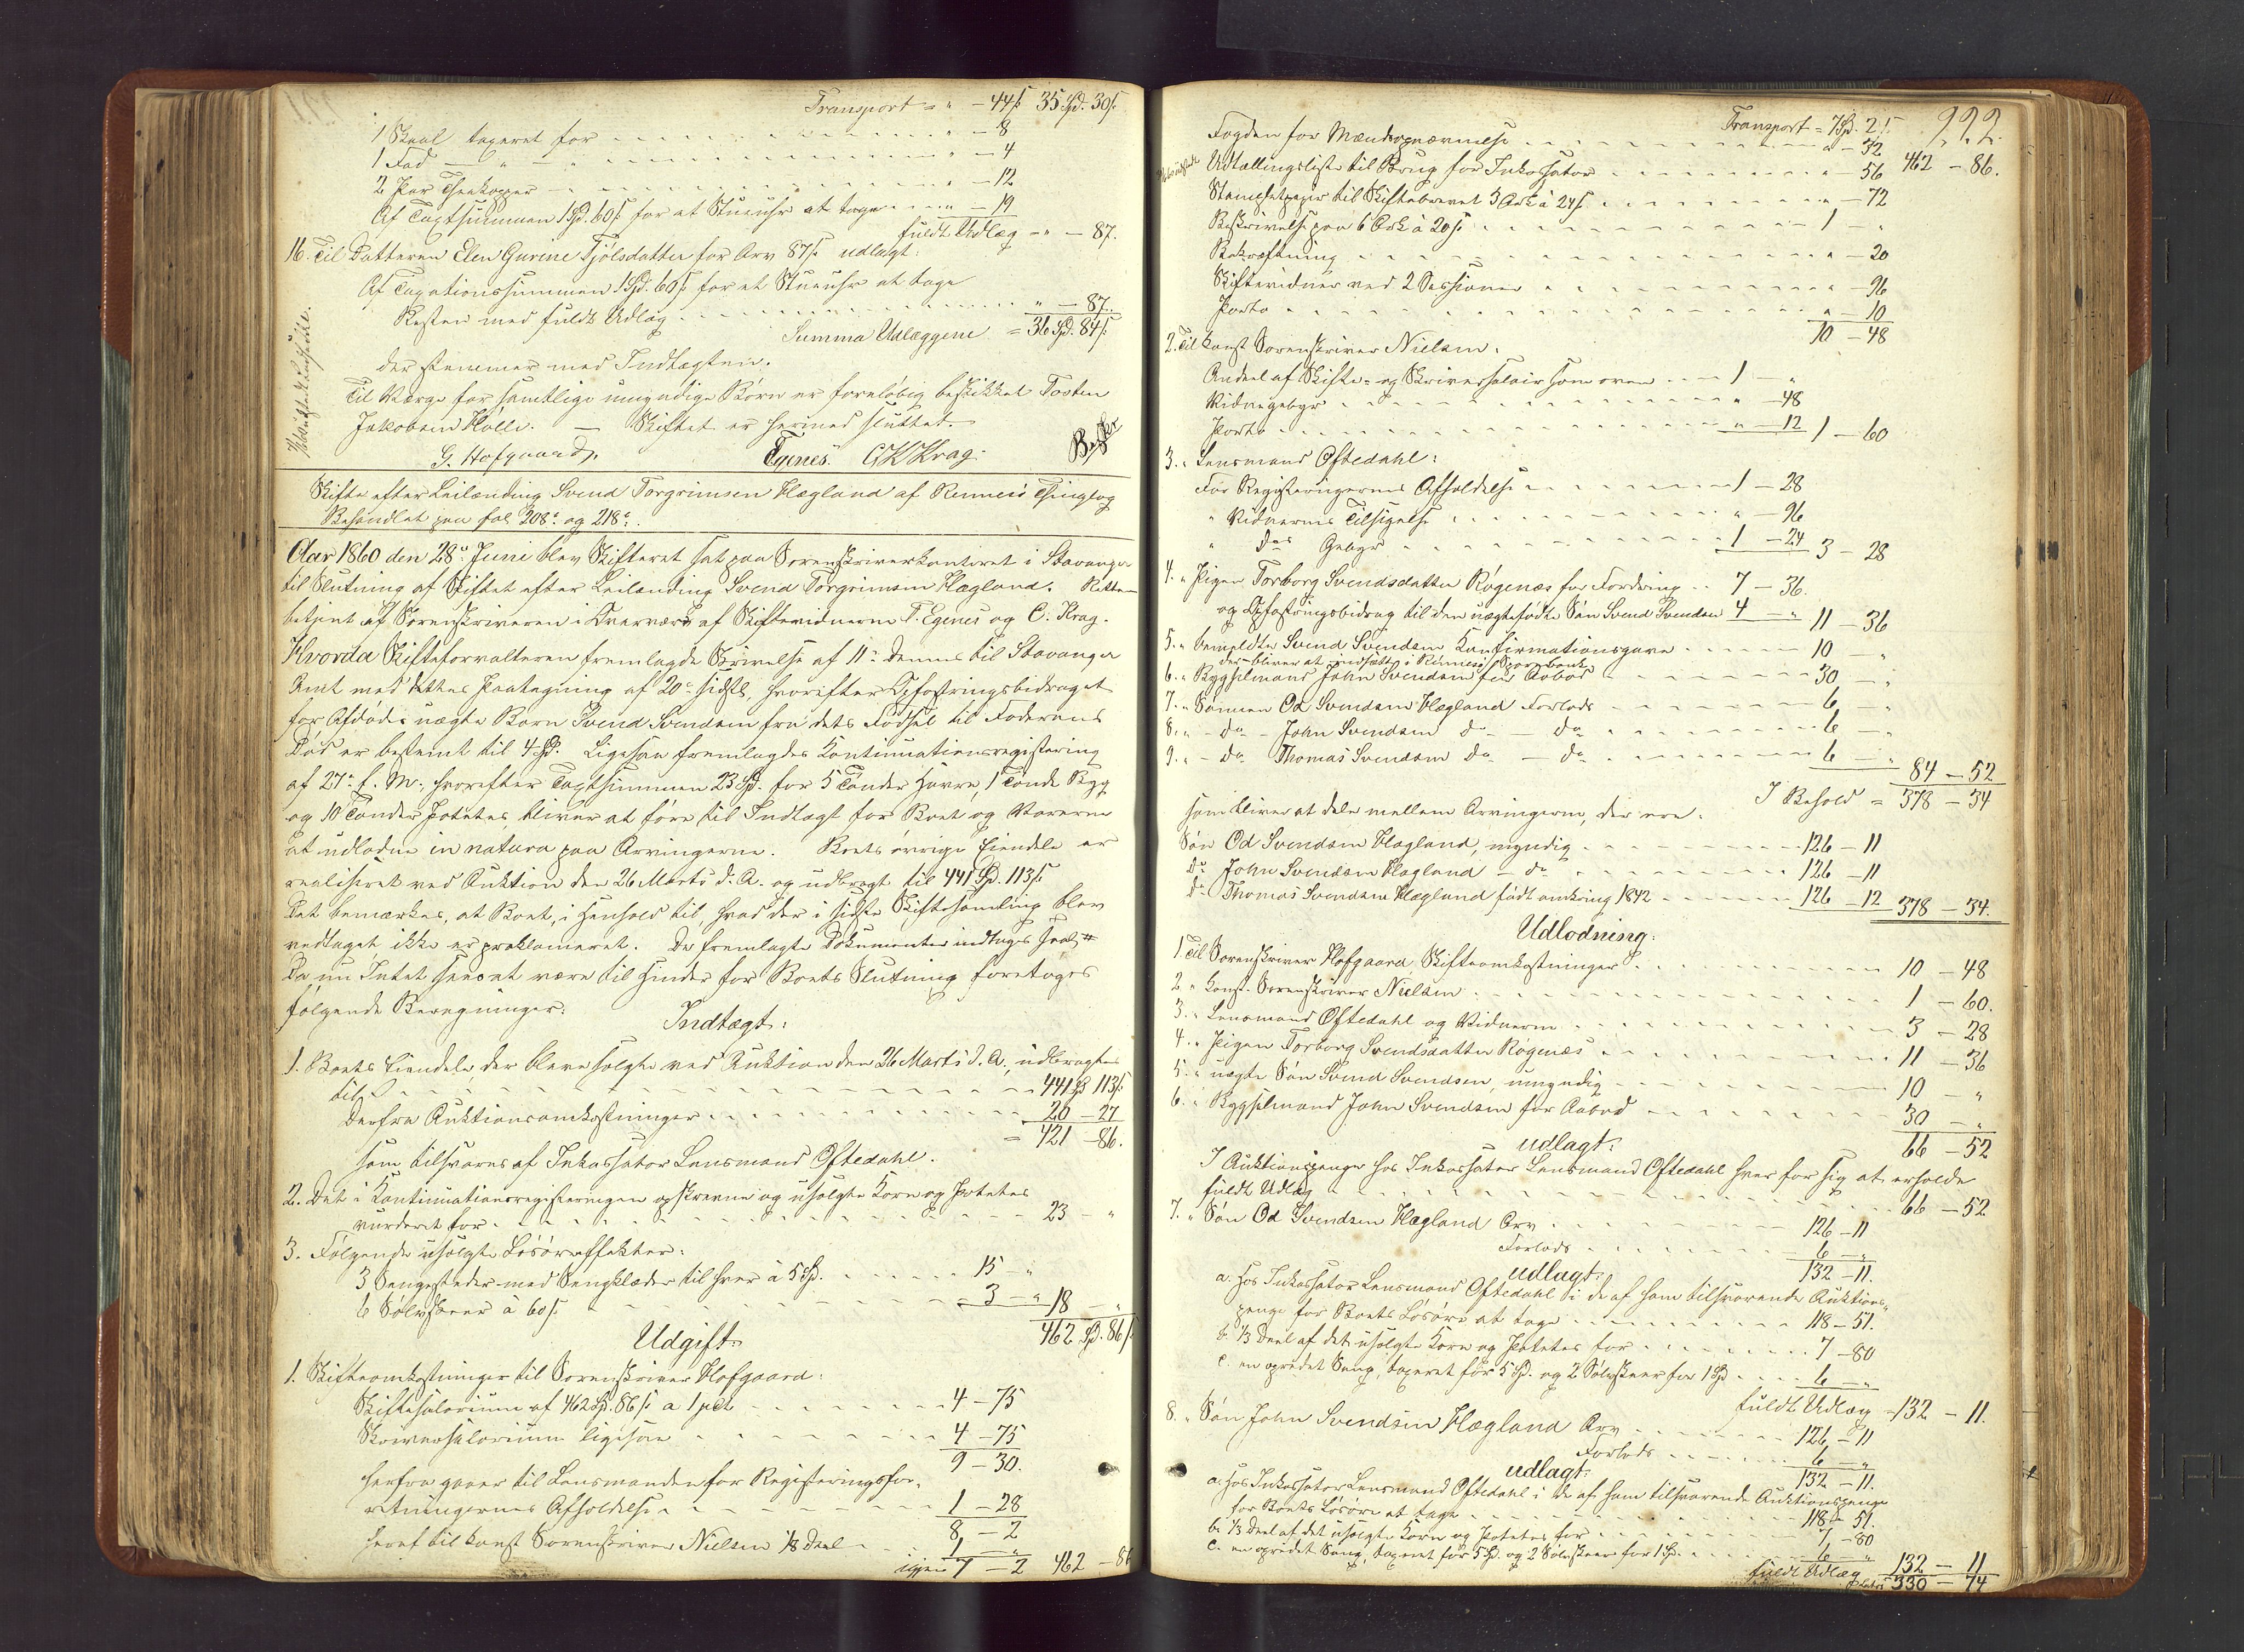 Transport = „ – 44 ſ 35 Spd. 30 ſ.
1 Skaal taxeret for „ – 8
1 Fad – „ – „ – 4
2 Par Theekopper „ – 12
Af Taxtsummen 1 Spd. 60 ſ for et Stueuhr at tage „ – 19
fuldt Udlæg – „ – 87.
16. Til Datteren Elen Gurine Tjölsdatter for Arv 87 ſ udlagt:
Af Taxationssummen 1 Spd. 60 ſ for et Stueuhr at tage
Resten med fuldt Udlæg „ – 87.
Summa Udlæggene = 36 Spd. 84 ſ.
der stemmer med Indtægten.
Til Værge for samtlige umyndige Börn er foreløbig beskikket Tosten
Jakobsen Hölle. – Skiftet er hermed sluttet.
G. Hofgaard. Egenes. C K Krag.
Skifte efter Leilænding Svend Torgrimsen Hægland af Rennesö Thinglag
Behandlet paa fol 208 og 218.
Aar 1860 den 28 Juni blev Skifteret sat paa Sorenskriverkontoret i Stavanger
til Slutning af Skiftet efter Leilænding Svend Torgrimsen Hægland. Retten
betjent af Sorenskriveren i Overvær af Skiftevidnerne T. Egenes og C. Krag.
Hvorda Skifteforvalteren fremlagde Skrivelse af 11 dennes til Stavanger
Amt med dettes Paategning af 20 sidstl. hvorefter Opfostringsbidraget
for Afdödes uægte Barn Svend Svendsen fra dets Födsel til Faderens
Död er bestemt til 4 Spd. Ligesaa fremlagdes Kontinuationsregistering
af 27 f. M., hvorefter Taxtsummen 23 Spd. for 5 Tönder Havre, 1 Tönde Byg
og 10 Tönder Potetes, bliver at före til Indtægt for Boet og Varerne
at udlodne in natura paa Arvingerne. Boets övrige Eiendele er
realiseret ved Auktion den 26 Marts d. A. og udbragt til 441 Spd. 113 ſ
Det bemærkes, at Boet, i Henhold til, hvad der i sidste Skiftesamling blev
vedtaget ikke er proklameret. De fremlagte Dokumenter indtages
Da nu Intet synes at være til Hinder for Boets Slutning foretages
følgende Beregninger:
Indtægt:
1. Boets Eiendele, der bleve solgte ved Auktion den 26 Marts d. A., udbragtes
til 441 Spd 113 ſ.
Derfra Auktionsomkostninger 20 – 27
= 421 – 86.
som tilsvares af Inkassator Lensmand Oftedahl.
2. Det i Kontinuationsregisteringen opskrevne og usolgte Korn og Potetes
vurderet for 23 – „
3. Følgende usolgte Lösöreeffekter:
3 Sengesteder med Sengklæder til hver à 5 Spd. 15 – „
6 Sølvskeer à 60 ſ. 3 – „ 18 – „
462 Spd. 86 ſ.
Udgift
1. Skifteomkostninger til Sorenskriver Hofgaard:
Skiftesalarium af 462 Spd. 86 ſ a 1 pct 4 – 75
Skriversalarium ligesaa 4 – 75
9 – 30.
herfra gaaer til Lensmanden for Registeringsfor-
retningernes Afholdelse 1 – 28
8 – 2
heraf til const Sorenskriver Nielsen 1/8 Deel 1 – „
igjen 7 – 2 462 – 86
Transport = 7 Spd. 2 ſ. 222.
Fogden for Mændsopnævnelse „ – 32
462 – 86.
Udtællingsliste til Brug for Inkassator „ – 56
Stempletpapir til Skiftebrevet 3 Ark à 24 ſ „ – 72
Beskrivelse paa 6 Ark à 20 ſ 1 – „
Bekræftning „ – 20
Skiftevidner ved 2 Sessioner „ – 96
Porto „ – 10
10 – 48
2. Til const Sorenskriver Nielsen:
Andeel af Skifte- og Skriversalair som oven 1 – „
Vidnegebyr „ – 48
Porto „ – 12 1 – 60
3. „ Lensmand Oftedahl:
For Registeringernes Afholdelse 1 – 28
„ Vidnernes Tilsigelse „ – 96
„ do Gebyr 1 – 24 3 – 28
4. „ Pigen Torborg Svendsdatter Røgenæs for Fordring 7 – 36.
og Opfostringsbidrag til den uægtefødte Søn Svend Svendsen 4 – „ 11 – 36
5. „ bemeldte Svend Svendsen Konfirmationsgave 10 – „
der bliver at indsætte i Rennesö Sparebank
6. „ Bygselmand John Svendsen for Aabod 30 – „
7. „ Sønnen Od Svendsen Hægland Forlods 6 – „
8. „ – do – John Svendsen do – do 6 – „
9. „ – do Thomas Svendsen do – do 6 – „
84 – 52
I Behold = 378 – 34
som bliver at dele mellem Arvingerne, der ere:
Søn Od Svendsen Hægland, myndig 126 – 11
do John Svendsen Hægland – do 126 – 11
do Thomas Svendsen Hægland født omkring 1842 126 – 12 378 – 34.
Udlodning:
1. Til Sorenskriver Hofgaard Skifteomkostninger 10 – 48
2 „ const. Sorenskriver Nielsen 1 – 60.
3. „ Lensmand Oftedahl og Vidnerne 3 – 28
4. „ Pigen Torborg Svendsdatter Røgenæs 11 – 36
5. „ uægte Søn Svend Svendsen, umyndig 10 – „
6. „ Bygselmand John Svendsen for Aabod 30 – „
udlagt: 66 – 52
I Auktionspenge hos Inkassator Lensmand Oftedahl hver for sig at erholde
fuldt Udlæg 66 – 52
7. „ Søn Od Svendsen Hægland Arv 126 – 11
Forlods 6 – „
udlagt: 132 – 11.
a. hos Inkassator Lensmand Oftedahl i de af ham tilsvarende Auktions-
penge for Boets Løsøre at tage 118 – 51.
b. 1/3 Deel af det usolgte Korn og Potetes for 7 – 80
c. en opredet Seng, taxeret for 5 Spd. og 2 Sølvskeer for 1 Spd 6 – „
fuldt Udlæg = 132 – 11.
8. „ Søn John Svendsen Hægland Arv 126 – 11
Forlods 6 – „
udlagt: 132 – 11.
a. hos Inkassator Lensmand Oftedahl i de af ham tilsvarende Auktionspenge
for Boets Løsøre at tage 118 – 51.
b. 1/3 Deel af det usolgte Korn og Potetes for 7 – 80
c. en opredet Seng, taxeret for 5 Spd. og 2 Sølvskeer for 1 Spd. 6 „
fuldt Udlæg 132 – 11
330 – 74